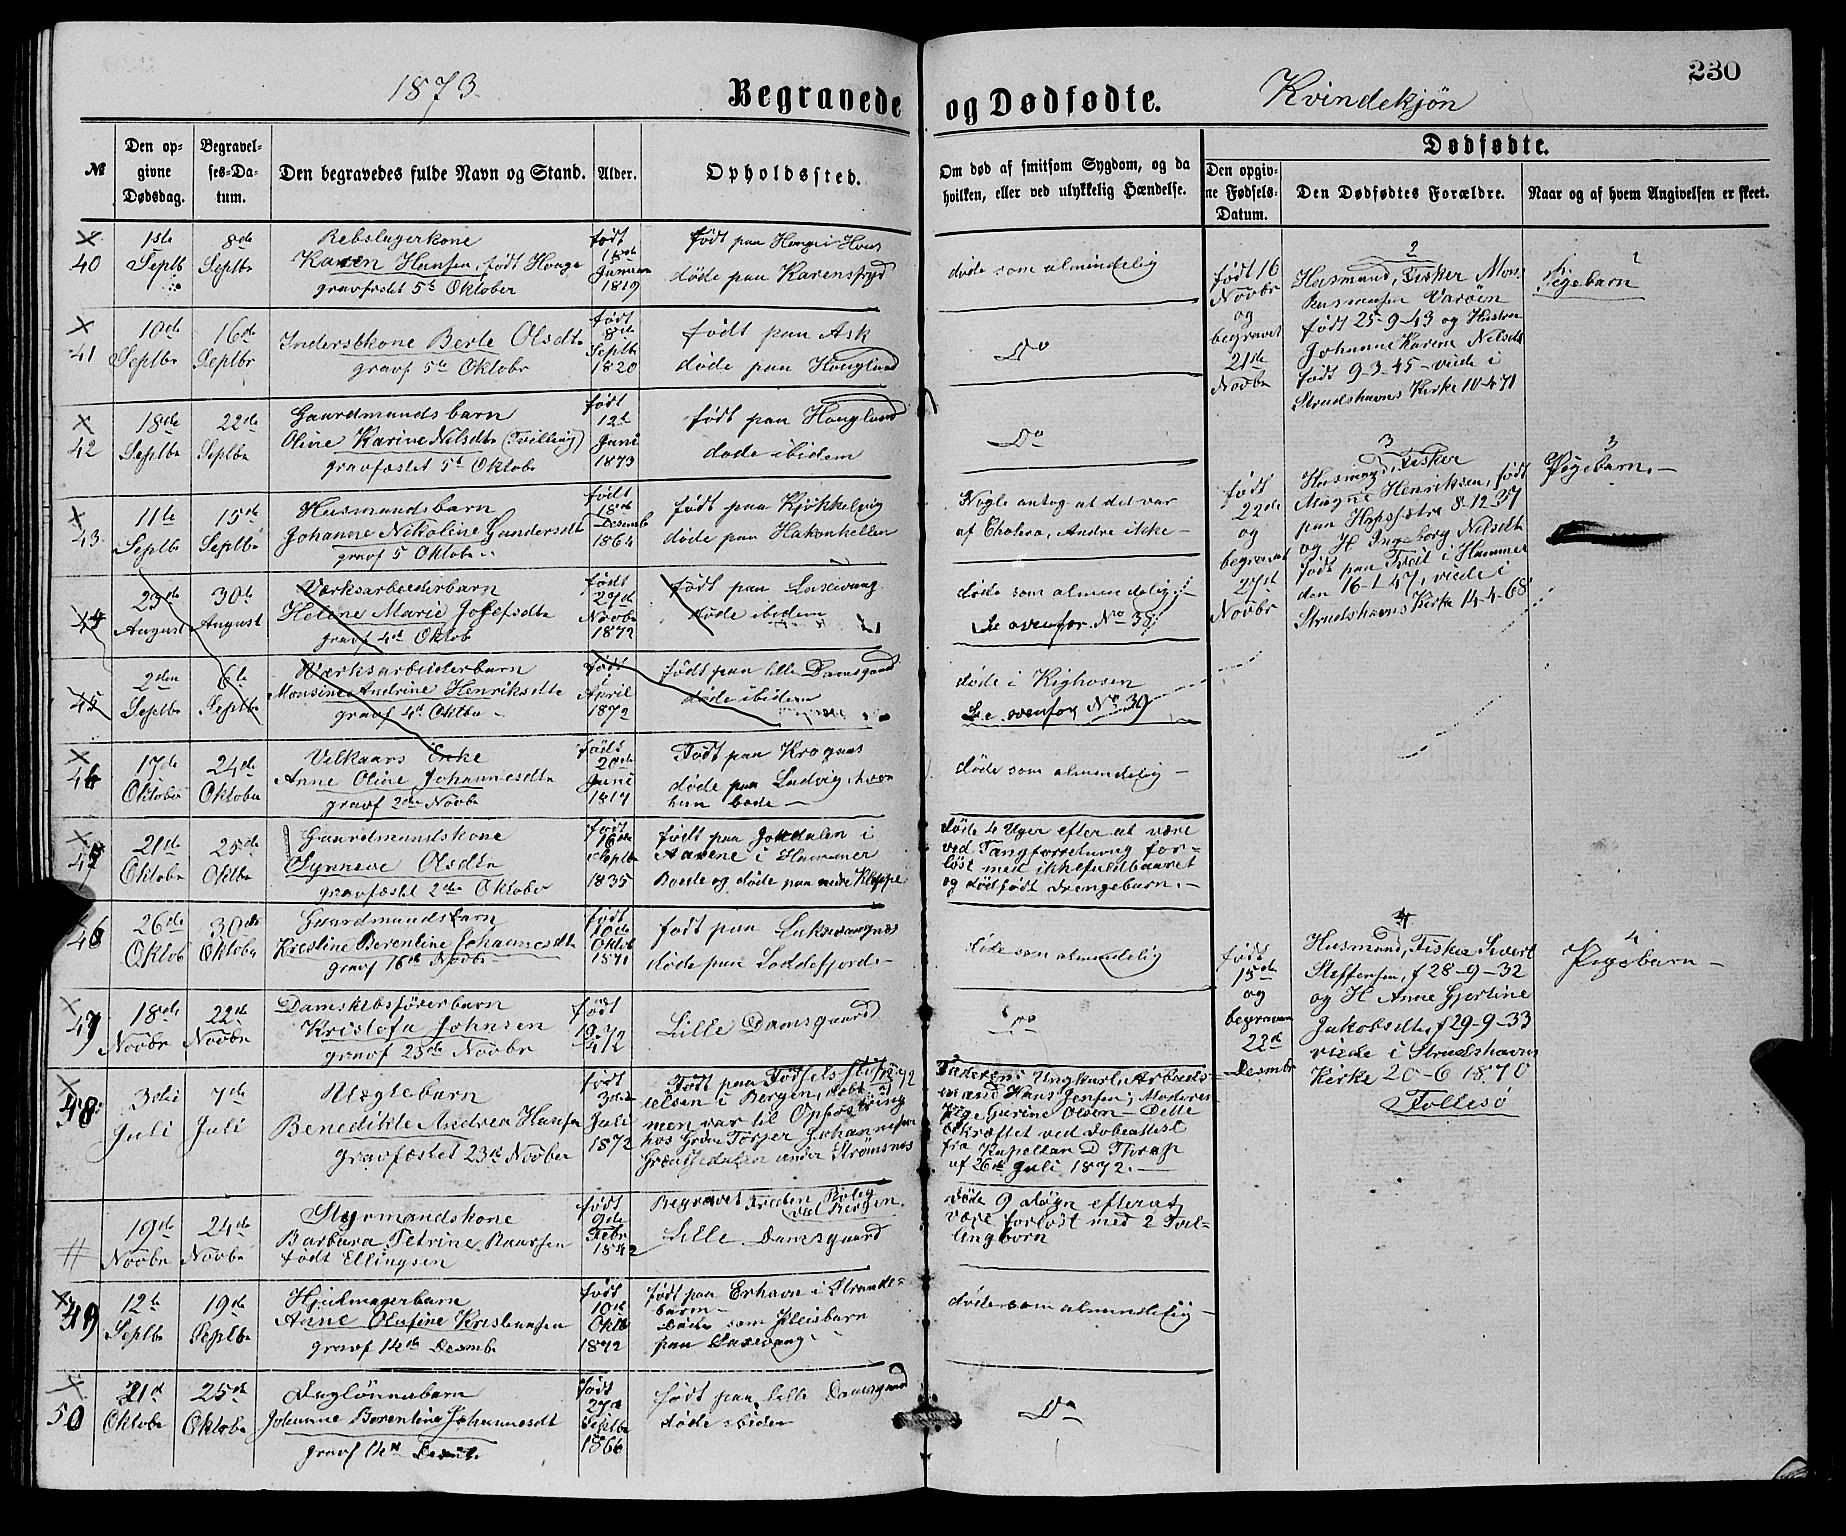 230
1873
Begravede og Dødfødte.
Kvindekjøn
№
Den opgivne Dødsdag.
Begravelses-Datum.
Den begravedes fulde Navn og Stand.
Alder.
Opholdssted.
Om død af smitsom Sygdom, og da hvilken, eller ved ulykkelig Hændelse.
Dødfødte.
Den opgivne Fødsels-Datum.
Den Dødfødtes Forældre.
Naar og af hvem Angivelsen er skeet.
40
1ste Septb
8de Septbr
Rebslagerkone
Karen Hansen, født Hauge
gravfæstet 5te Oktober
født Januar 1819
født paa Hauge i Hous
døde paa Karensfryd
døde som almindelig
41
10de Septbr
16de Septbr
Inderstkone Berte Olsdtr
gravf 5te Oktobr
født 8de Septbr 1820
født paa Ask
døde paa Houglund
Do
42
18de Septbr
22de Septbr
Gaardmands barn
Oline Karine Nilsdtr (Tvilling)
gravfæstet 5te Oktobr
født 12te Juni 1873
født paa Houglund
døde ibidem
Do
43
11te Septbr
15de Septbr
Husmandsbarn
Johanne Nikoline Gundersdtr
gravf 5 Oktobr
født 18de Desemb 1864
født paa Kjøkkelvig
døde paa Hakonhellen
Nogle antog at det var
af Cholera, Andre ikke
44
23de August
30te August
Værksarbeiderbarn
Heline Marie Josefsdtr
gravf 4de Oktob
født 27de Novbr 1872
født paa Laxevaag
døde ibidem
døde som almindelig
Se ovenfor No 38
45
2den Septbr
6te Septbr
Værksarbeiderbarn
Monsine Andrine Henriksdtr
gravf 4de Oktbr
født April 1872
født paa lille Damsgaard
døde ibidem
døde i Kighosen
Se ovenfor No 39
46
17de Oktober
24de Oktober
Velkaars Enke
Anne Oline Johannesdtr
gravf 2den Novbr
født 20de Juni
Født paa Kragnæs
døde paa Ludvig, hvor
hun boede
døde som almindelig
45
21de Oktobr
25de Oktbr
Gaardmandskone
Synneve Olsdtr
gravfæstet 2den Oktober
født 16de Septbr 1835
født paa Jordalen i
Aasene i Hammer
Boede og døde paa nedre Kleppe
døde 4 Uger efter at være
ved Tangforretning for-
løst med ikkefuldbaaret
og dødfødt Drengebarn.
46
26de Oktob
30te Oktober
Gaardmandsbarn
Kristine Berentine Johannesdtr
gravf 16de Novbr
født 10de Oktob 1871
født paa
døde paa Loddefjord
døde som almindelig
47
18de Novbr
22de Novbr
Damskibsførerbarn
Kristofa Johnsen
gravf 23de Novbr
født
Lille Damsgaard
Do
48
3die Juli
7de Juli
Uægtebarn
Benedikte Andrea Hansen
gravfæstet 23de Novber
født 3die Juli 1872
Født paa Fødselsstif-
telsen i Bergen, døbt
men var til Opfostring
hos Torger Johannesen
under Strømsnes
Faderen: Ungkarl, Arbeids-
mand Hans Jensen; Moderen
Pige Gurine Olsen - Dette
bekræftet ved Dobeattest
fra Kapellan D Thrap
af 26de Juli 1872.
19de Novbr
24de Novbr
Styrmandskone
Barbara Petrine
født Ellingsen
født 9de Febr 1842
Begravet Freden Bolig
ved Bergen.
Lille Damsgaard
døde 9 døgn efterat
være forløst med 2 Tvil-
lingbørn
49
12te Septbr
19de Septbr
Hjulmagerbarn
Anne Olufine Kristiansen
gravf 14de Desmbr
født 10de Oktb 1872
født paa Erhavn i Strande-
barm
døde som Pleiebarn
paa Laxevaag
døde som almindelig
50
21de Oktober
25de Oktober
Daglønnerbarn
Johanne Berentine Johannesdt
gravf 14de
født 27de Septbr 1866
født paa Lille Damsgaard
døde ibidem
Do
født 16 Novbr og begravet 21de Novbr
2
Husmand, Fisker Mons
Rasmussen Varøen
født 25-9-43 og Hustru
Johanne Karine Nilsdtr
født 9-3-45 - viede i
Strudshavns Kirke 10-4 71
Pigebarn
født 22de og begravet 27de Novbr
3
Husmand, Fisker
Magne Henriksen, født
paa Hopssætre 8-12-37
og H Ingeborg Nilsdtr
født paa Tveit i Hammer
den 16-1-47, viede i
Strudshavns Kirke 14-4-68
3
Pigebarn
født 15de og begraven 22de Desmbr
4
Husmand, Fisker Sivert
Steffensen, f 28-9-32
og H Anne Gjertine
Jakobsdtr, f 29-9-33
viede i Strudshavns
Kirke 20-6 1870
Follesø
4
Pigebarn